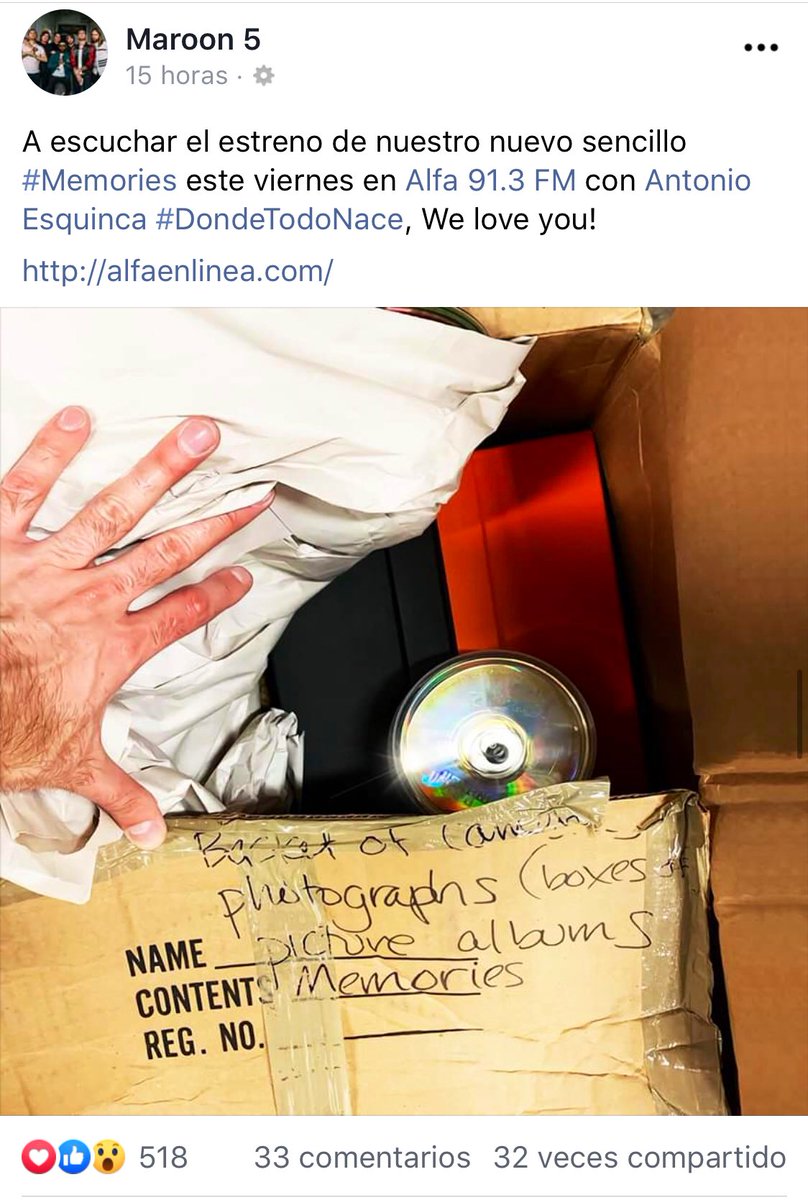 Maroon 5
15 horas ·
A escuchar el estreno de nuestro nuevo sencillo
#Memories este viernes en Alfa 91.3 FM con Antonio
Esquinca #DondeTodoNace, We love you!
http://alfaenlinea.com/
of
photographs (boxes of
NAME picture albums
CONTENTS Memories
REG. NO.
518 33 comentarios 32 veces compartido